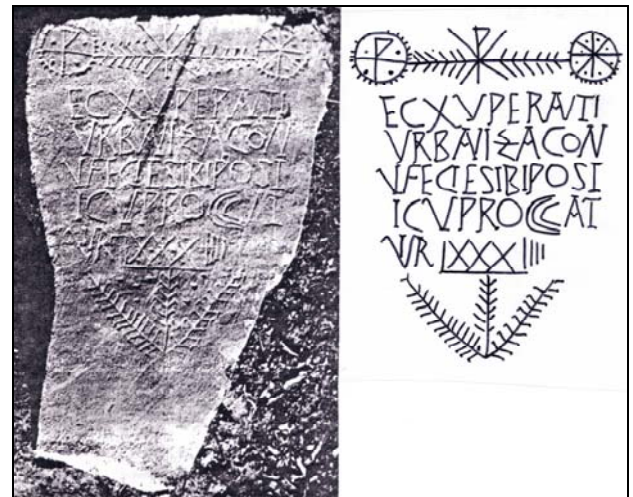 ECXVPERATI
VRBANIΣACON
VFECIESIBIPOSI
ICVPROCCAT
VR XXXIIII
ECXVPERATI
VRBANIΣACON
VFECIESIBIPOSI
ICVPROCCAI
VR XXXIIII